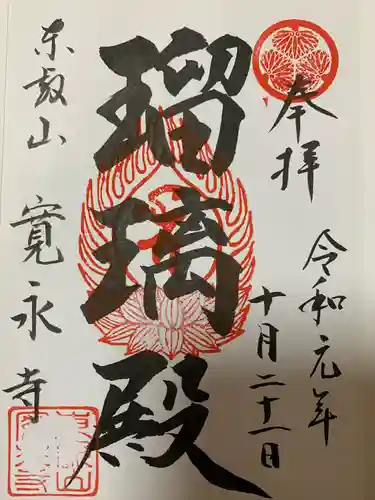 奉拝
令和元年
十月二十一日
瑠璃殿
东叡山
寛永寺